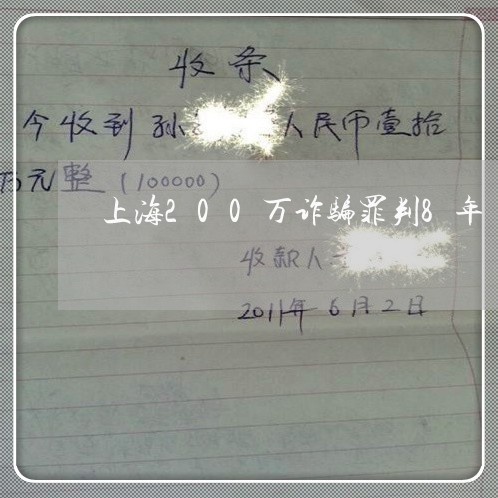 收条
今收到孙 人民币壹拾
万元整(100000)
上海200万诈骗罪判8年
收款人
2011年6月2日